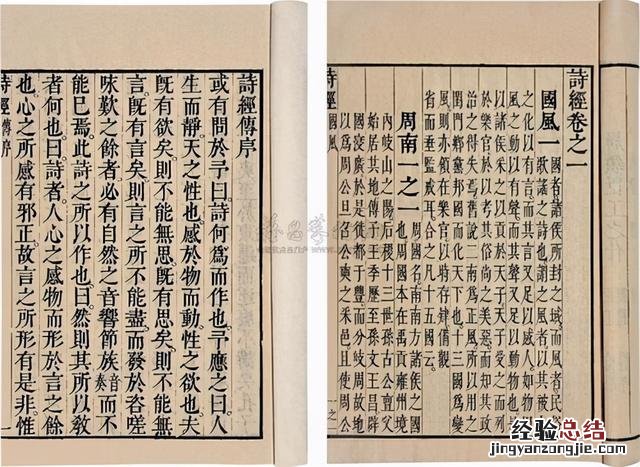 詩經卷之一
國風一 國者諸侯所封之域。而風者民俗
歌謠之詩也。謂之風者。以其被上
之化以有言。而其言又足以感人。如物因
風之動以有聲。而其聲又足以動物也。是
以諸侯采之以貢於天子。天子受之而列
於樂官。於以考其俗尚之美惡。而知其政
治之得失焉。舊說二南爲正風。所以用之
閨門鄉黨邦國而化天下也。十三國爲變
風。則亦領在樂官。以時存肄備觀
省而垂監戒耳。合之凡十五國云。
周南一之一 周國名。南南方諸侯之國
也。周國本在禹貢雍州境
內岐山之陽。后稷十三世孫古公亶父
始居其地。傳子王季歷。至孫文王昌。辟
國寖廣。於是徙都于豐。而分岐周故地
以爲周公旦召公奭之采邑。且使周公
詩經 國風 一之一
詩經傳序
或有問於予曰。詩何爲而作也。予應之曰。人
生而靜。天之性也。感於物而動。性之欲也。夫
既有欲矣。則不能無思。既有思矣。則不能無
言。既有言矣。則言之所不能盡。而發於咨嗟
咏歎之餘者。必有自然之音響節族音奏而不
能已焉。此詩之所以作也。曰。然則其所以教
者何也。曰。詩者。人心之感物而形於言之餘
也。心之所感有邪正。故言之所形有是非。惟
詩經 傳序 一
经验总结
jingyanzongjie.com